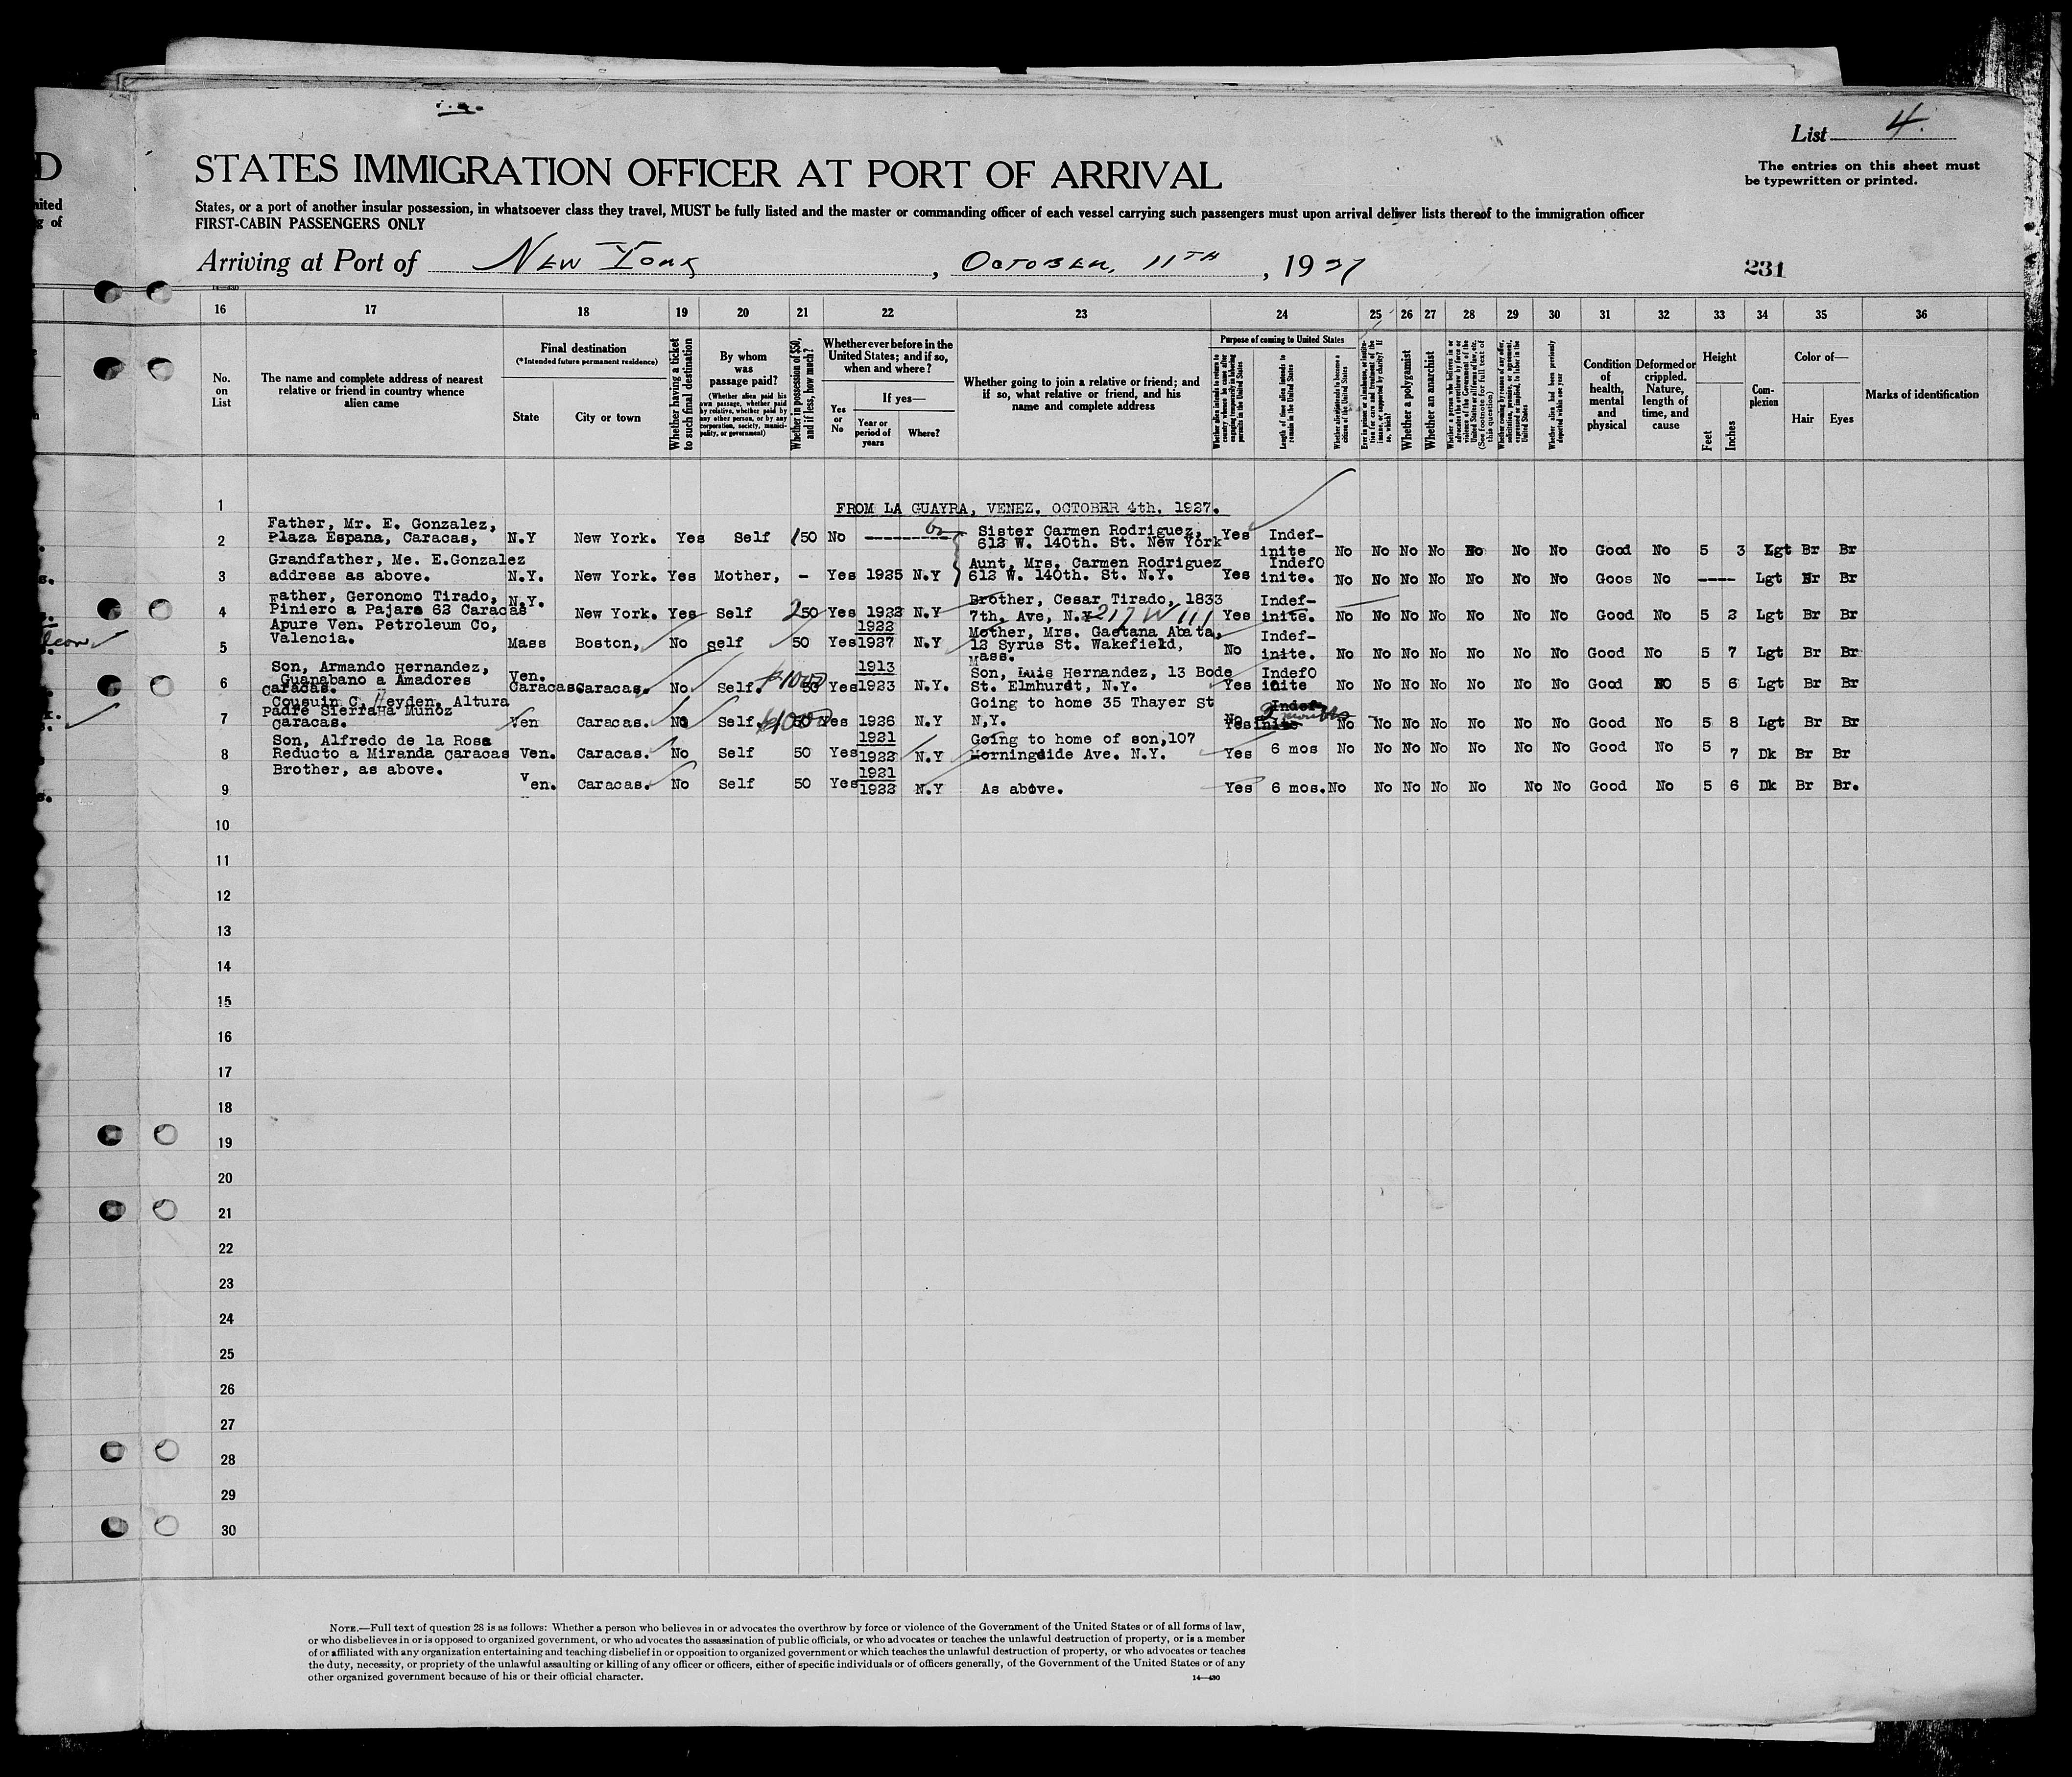 List 4.
D
STATES IMMIGRATION OFFICER AT PORT OF ARRIVAL
The entries on this sheet must
be typewritten or printed.
nited
g of
States, or a port of another insular possession, in whatsoever class they travel, MUST be fully listed and the master or commanding officer of each vessel carrying such passengers must upon arrival deliver lists thereof to the immigration officer
FIRST-CABIN PASSENGERS ONLY
Arriving at Port of New York, October, 11TH, 1927
231
16 17 18 19 20 21 22 23 24 25 26 27 28 29 30 31 32 33 34 35 36
No. on List
The name and complete address of nearest relative or friend in country whence alien came
Final destination
(*Intended future permanent residence)
State
City or town
Whether having a ticket to such final destination
By whom was passage paid?
(Whether alien paid his own passage, whether paid by relative, whether paid by any other person, or by any corporation, society, municipality, or government)
Whether in possession of $50, and if less, how much?
Whether ever before in the United States; and if so, when and where?
Yes or No
If yes—
Year or period of years
Where?
Whether going to join a relative or friend; and if so, what relative or friend, and his name and complete address
Purpose of coming to United States
Length of time alien intends to remain in the United States
Whether a polygamist
Whether an anarchist
Whether alien had been previously deported within one year
Condition of health, mental and physical
Deformed or crippled. Nature, length of time, and cause
Height
Feet
Inches
Complexion
Color of—
Hair
Eyes
Marks of identification
1 FROM LA GUAYRA, VENEZ. OCTOBER 4th. 1927.
2 Father, Mr. E. Gonzalez, Plaza Espana, Caracas, N.Y New York. Yes Self 150 No ---------- Sister Carmen Rodriguez, 612 W. 140th. St. New York Yes Indef-inite No No No No No No No Good No 5 3 Lgt Br Br
3 Grandfather, Me. E.Gonzalez address as above. N.Y. New York. Yes Mother, - Yes 1925 N.Y Aunt, Mrs. Carmen Rodriguez 612 W. 140th. St. N.Y. Yes Indef0 inite. No No No No No No No Goos No ---- Lgt Br Br
4 Father, Geronomo Tirado, Piniero a Pajare 62 Caracas N.Y. New York. Yes Self 250 Yes 1922 N.Y Brother, Cesar Tirado, 1833 7th. Ave, N.Y 217 W 111 Yes Indef-inite. No No No No No No No Good No 5 2 Lgt Br Br
5 Apure Ven. Petroleum Co, Valencia. Mass Boston, No self 50 Yes 1922 1927 N.Y Mother, Mrs. Gaetana Abata, 12 Syrus St. Wakefield, Mass. No Indef-inite. No No No No No No No Good No 5 7 Lgt Br Br
6 Son, Armando Hernandez, Guanabano a Amadores Caracas. Ven. Caracas Caracas. No Self. $1000 50 Yes 1913 1923 N.Y. Son, Luis Hernandez, 13 Bode St. Elmhurst, N.Y. Yes Indef0 inite No No No No No No No Good NO 5 6 Lgt Br Br
7 Cousuin C. Heyden, Altura Padre Sierra a Munoz Caracas. Ven Caracas. No Self. $1000 50 Yes 1926 N.Y Going to home 35 Thayer St N,Y. No Yes Indef-inite 2 months No No No No No No No Good No 5 8 Lgt Br Br
8 Son, Alfredo de la Rosa Reducto a Miranda Caracas Ven. Caracas. No Self 50 Yes 1921 1922 N.Y Going to home of son,107 Morningside Ave. N.Y. Yes 6 mos No No No No No No No Good No 5 7 Dk Br Br
9 Brother, as above. Ven. Caracas. No Self 50 Yes 1921 1922 N.Y As above. Yes 6 mos. No No No No No No No Good No 5 6 Dk Br Br.
10
11
12
13
14
15
16
17
18
19
20
21
22
23
24
25
26
27
28
29
30
NOTE.—Full text of question 28 is as follows: Whether a person who believes in or advocates the overthrow by force or violence of the Government of the United States or of all forms of law,
or who disbelieves in or is opposed to organized government, or who advocates the assassination of public officials, or who advocates or teaches the unlawful destruction of property, or is a member
of or affiliated with any organization entertaining and teaching disbelief in or opposition to organized government or which teaches the unlawful destruction of property, or who advocates or teaches
the duty, necessity, or propriety of the unlawful assaulting or killing of any officer or officers, either of specific individuals or of officers generally, of the Government of the United States or of any
other organized government because of his or their official character.
14—430